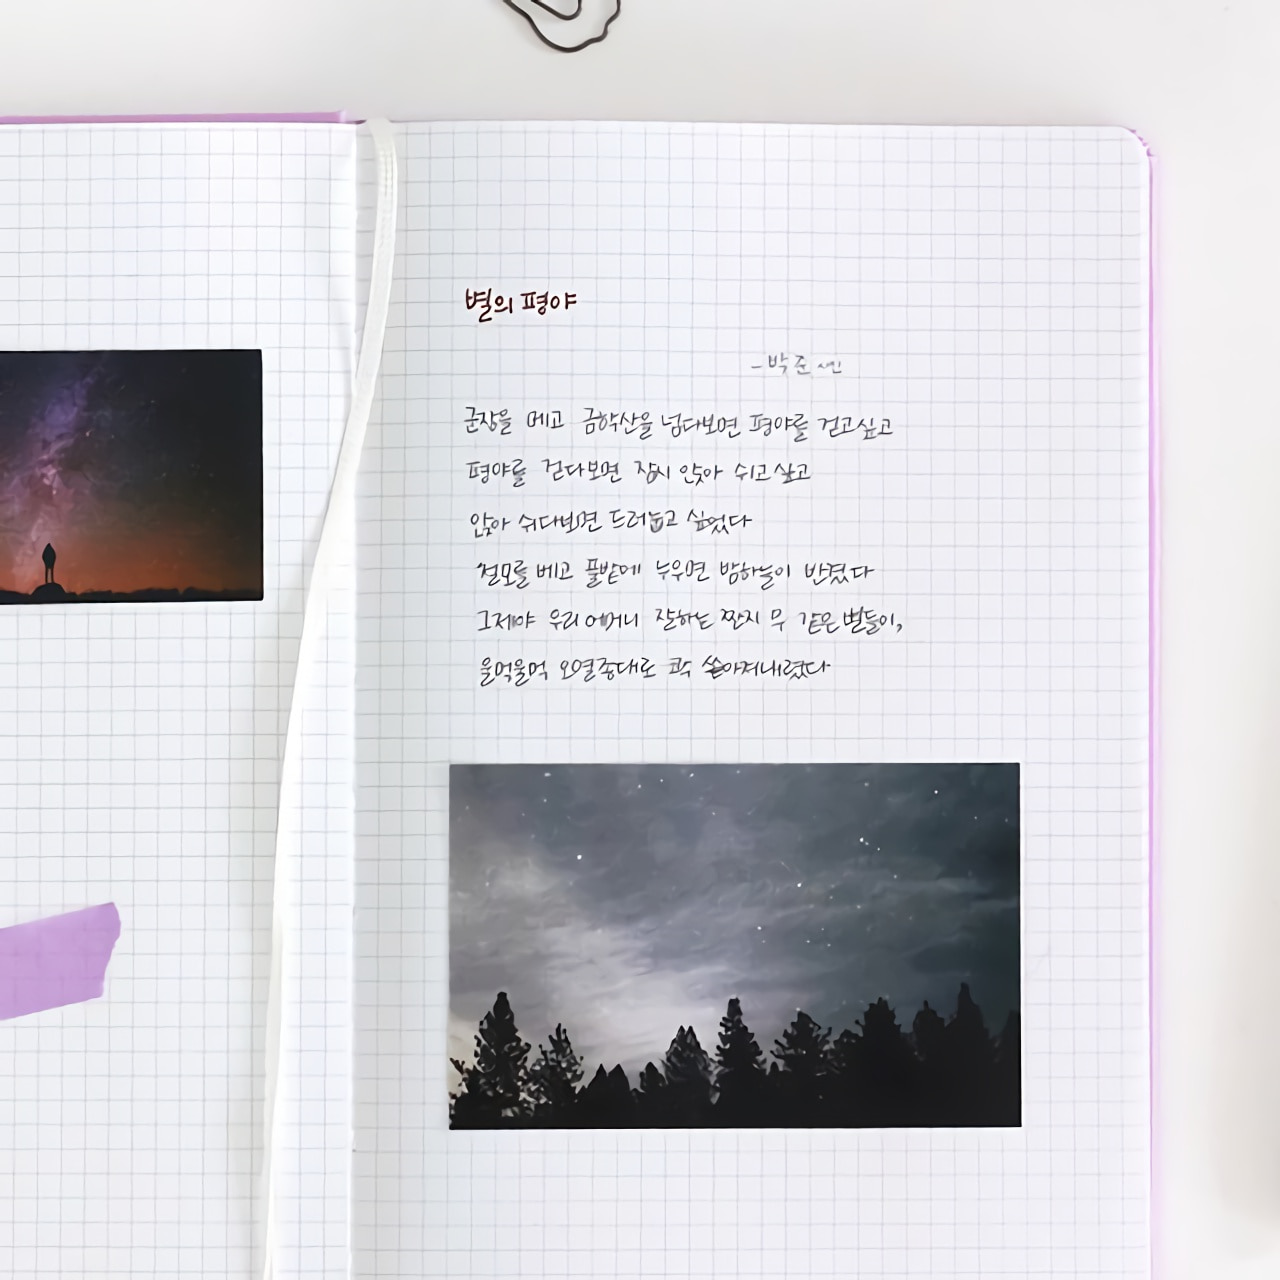 별의 평야
- 박준 시인
군장을 메고 금학산을 넘다보면 평야를 걷고싶고
평야를 걷다보면 잠시 앉아 쉬고싶고
앉아 쉬다보면 드러눕고 싶었다
철모를 베고 풀밭에 누우면 밤하늘이 반겼다
그제야 우리 어머니 잘하는 짠지 무 같은 별들이,
울먹울먹 오열종대로 콱 쏟아져내렸다